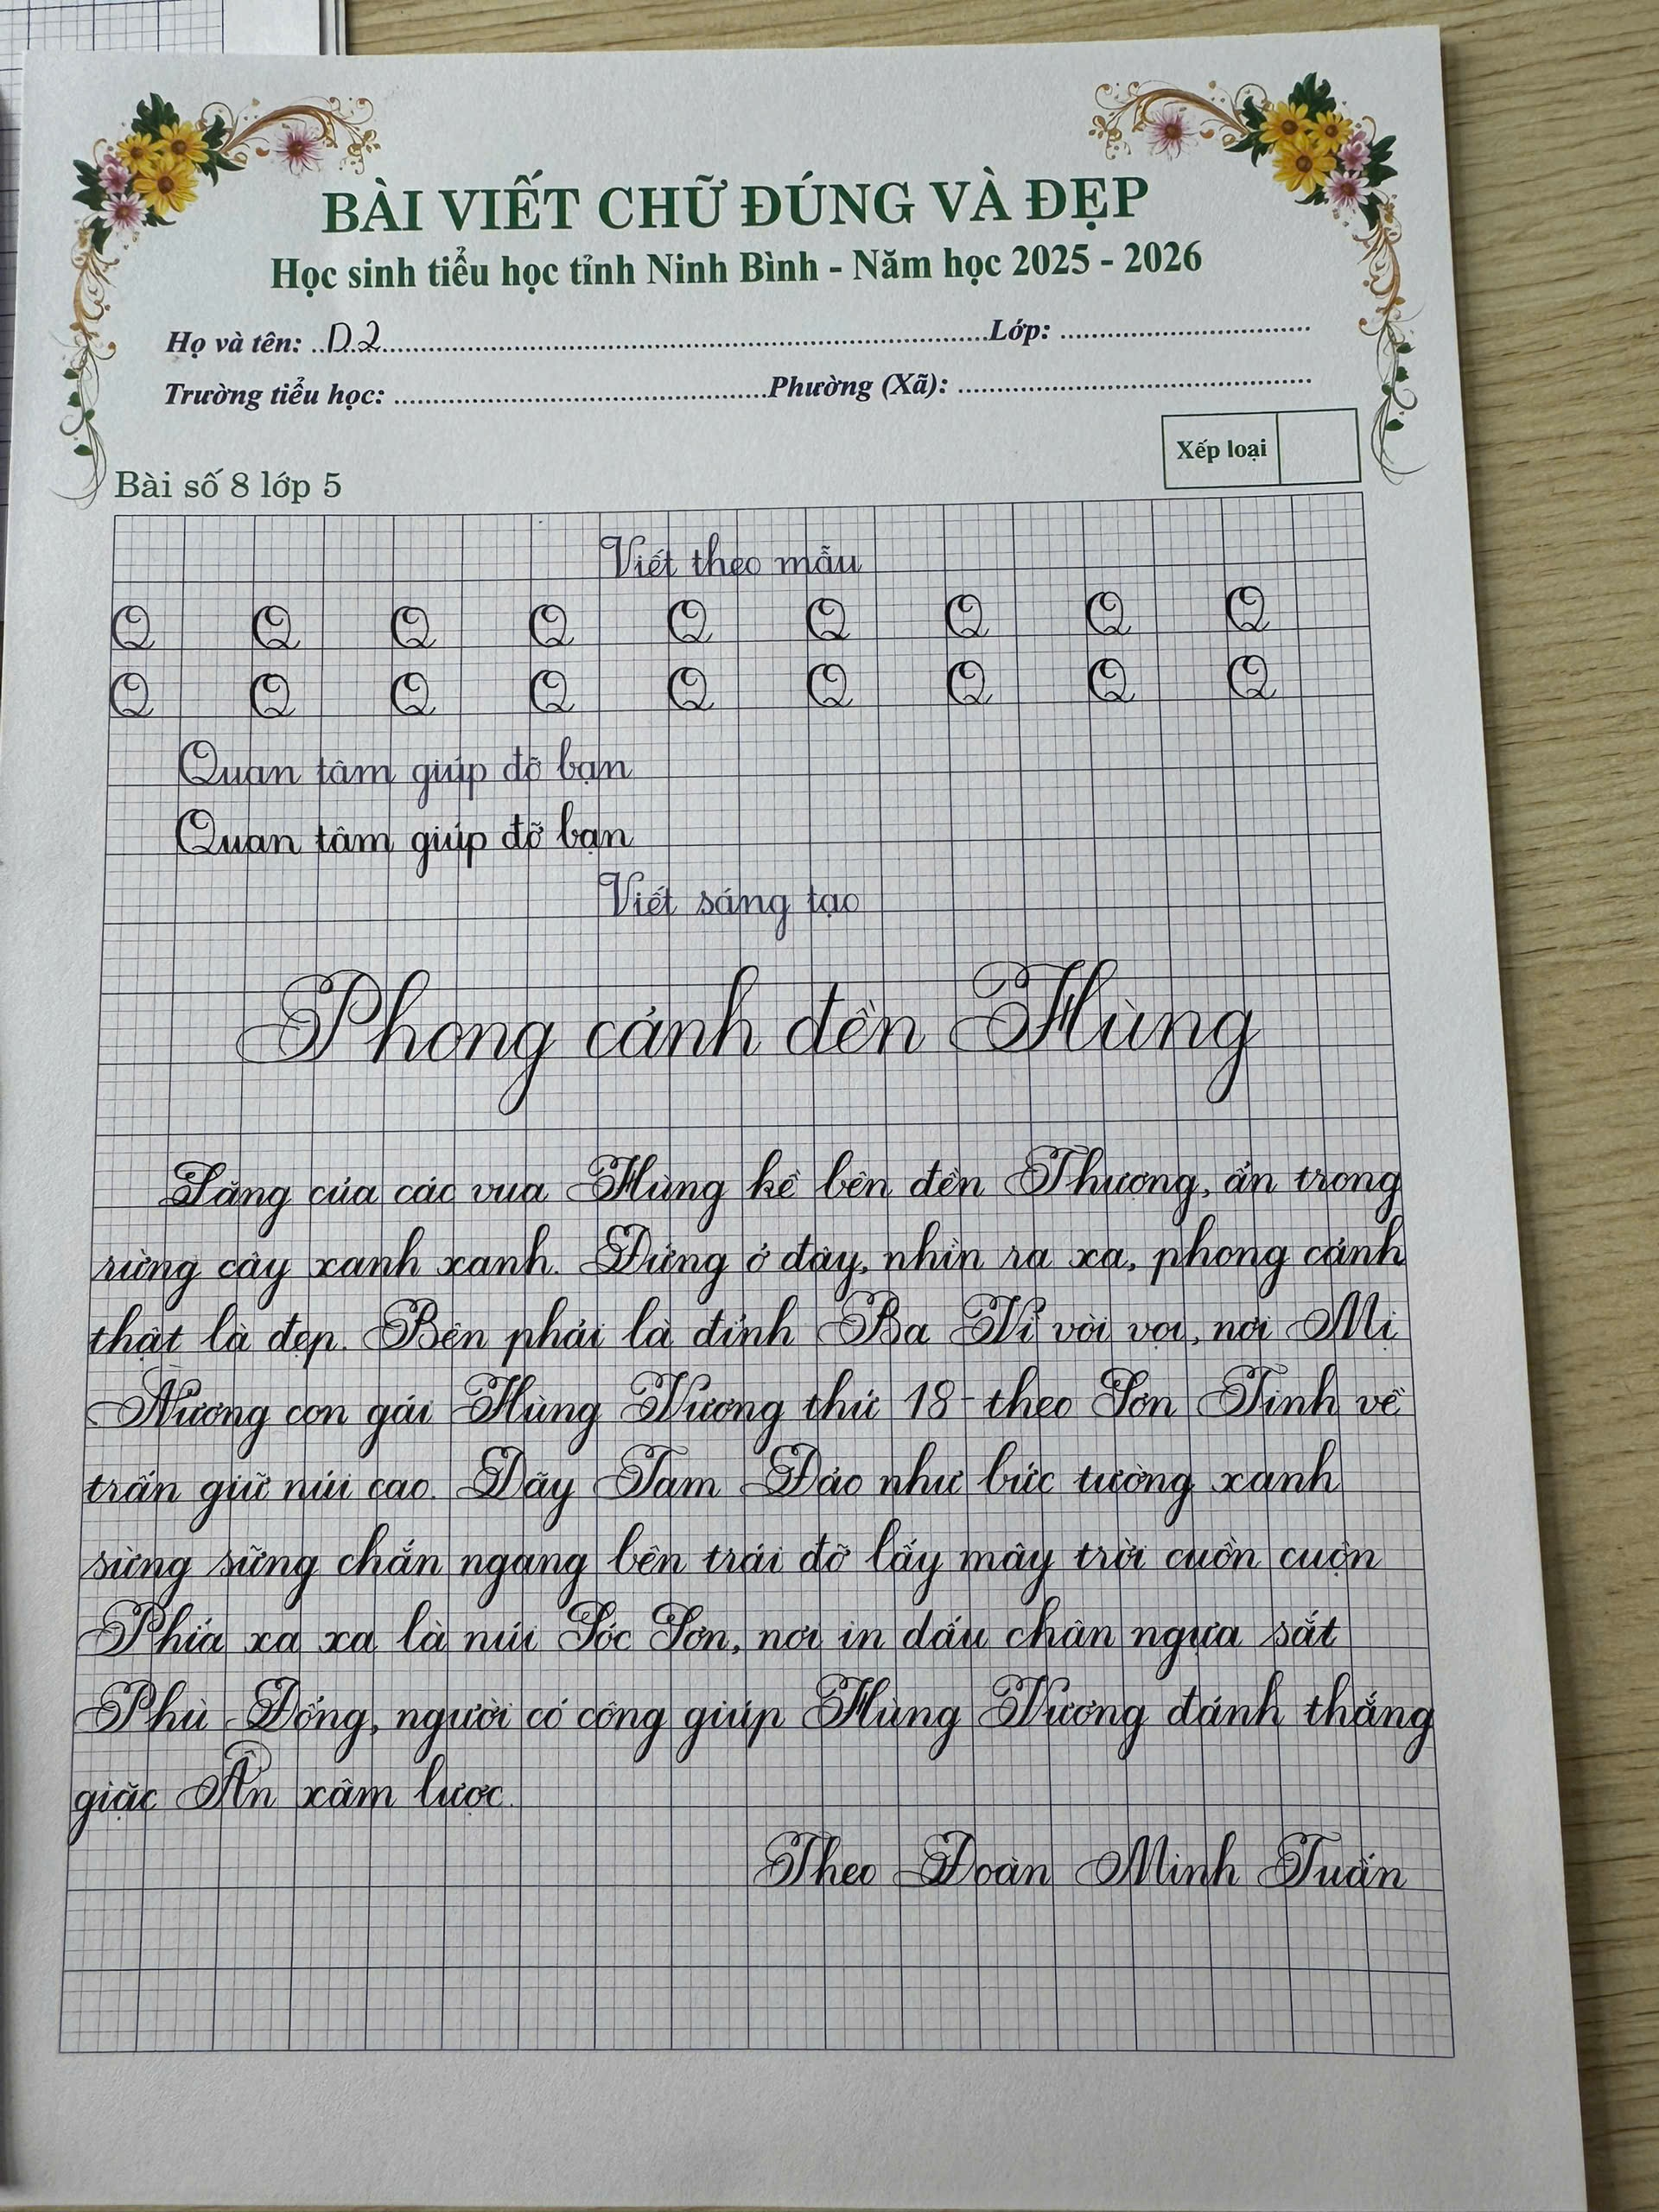 BÀI VIẾT CHỮ ĐÚNG VÀ ĐẸP
Học sinh tiểu học tỉnh Ninh Bình - Năm học 2025 - 2026
Họ và tên: D.2 Lớp:
Trường tiểu học: Phường (Xã):
Xếp loại
Bài số 8 lớp 5
Viết theo mẫu
Q Q Q Q Q Q Q Q Q
Q Q Q Q Q Q Q Q Q
Quan tâm giúp đỡ bạn
Quan tâm giúp đỡ bạn
Viết sáng tạo
Phong cảnh đền Hùng
Lăng của các vua Hùng kề bên đền Thượng, ẩn trong
rừng cây xanh xanh. Đứng ở đây, nhìn ra xa, phong cảnh
thật là đẹp. Bên phải là đỉnh Ba Vì vời vợi, nơi Mị
Nương con gái Hùng Vương thứ 18 - theo Sơn Tinh về
trấn giữ núi cao. Dãy Tam Đảo như bức tường xanh
sừng sững chắn ngang bên trái đỡ lấy mây trời cuồn cuộn
Phía xa xa là núi Sóc Sơn, nơi in dấu chân ngựa sắt
Phù Đổng, người có công giúp Hùng Vương đánh thắng
giặc Ân xâm lược.
Theo Đoàn Minh Tuấn